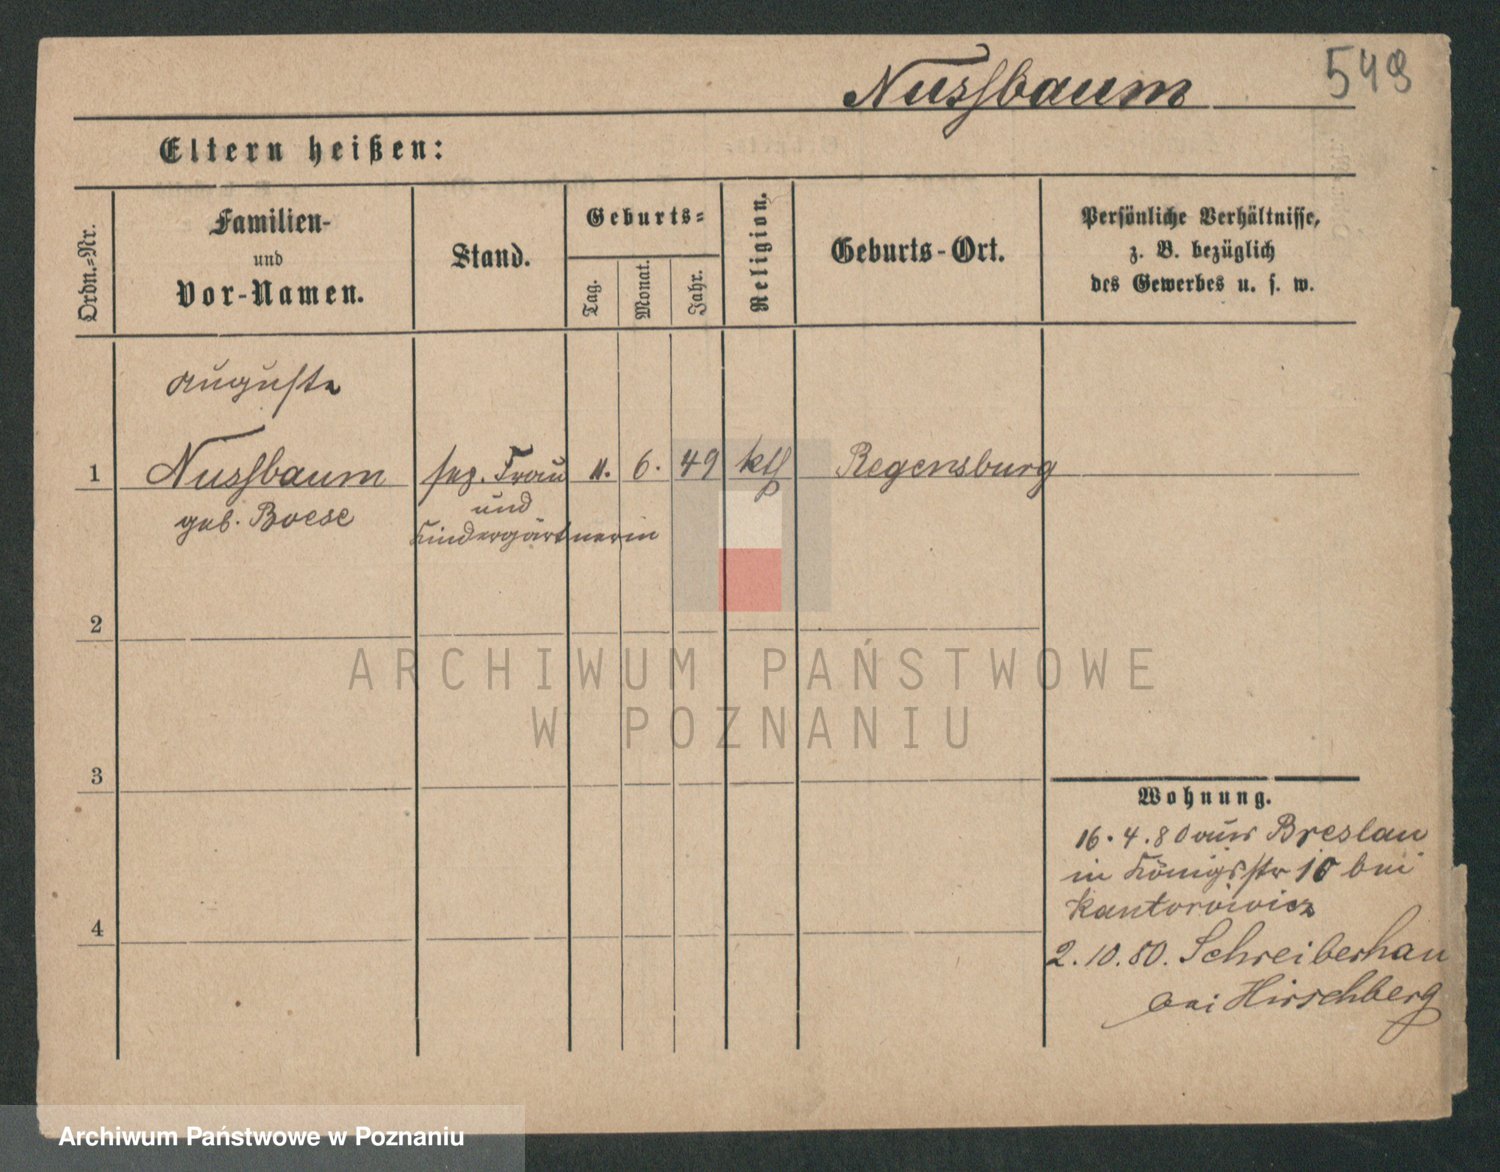 Nussbaum
549
Eltern heißen:
Ordn.-Nr.
Familien-
und
Vor-Namen.
Stand.
Geburts-
Tag.
Monat.
Jahr.
Religion.
Geburts-Ort.
Persönliche Verhältnisse,
z. B. bezüglich
des Gewerbes u. s. w.
Auguste
1 Nussbaum sep. Frau 11. 6. 49 kth Regensburg
geb. Boese und
Kindergärtnerin
2
3
4
Wohnung.
16.4.80 aus Breslau
in Königsstr 10 bei
Kantorowicz
2.10.80. Schreiberhau
bei Hirschberg
ARCHIWUM PAŃSTWOWE
W POZNANIU
Archiwum Państwowe w Poznaniu